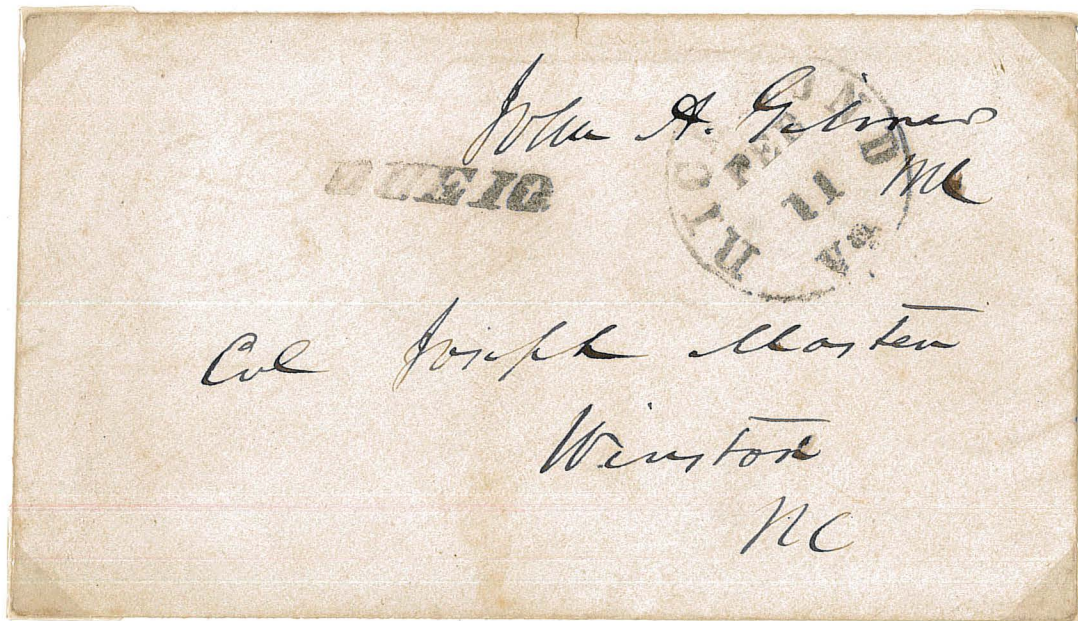 John A. Gilmer
MC
RICHMOND
FEB
11
Va
DUE 10
Col Joseph Masten
Winston
NC